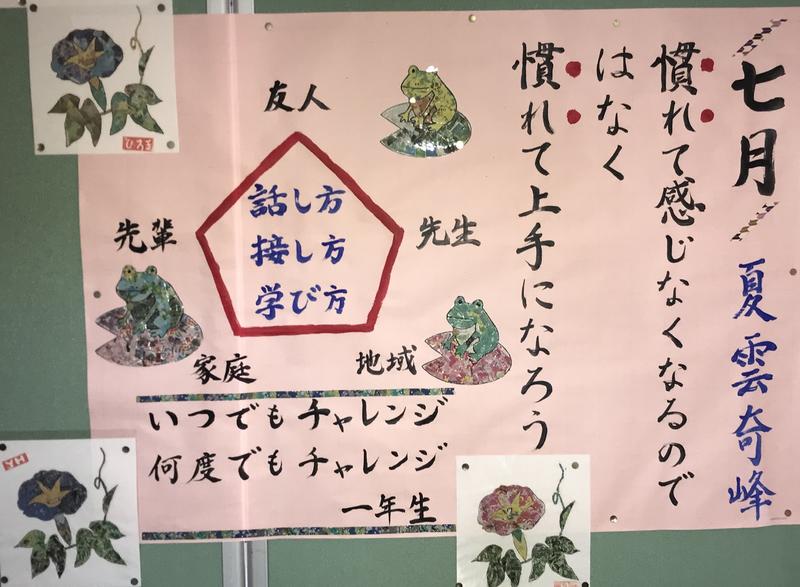 七月
夏雲奇峰
慣れて感じなくなるので
はなく
慣れて上手になろう
友人
先輩
先生
話し方
接し方
学び方
家庭
地域
いつでもチャレンジ
何度でもチャレンジ
一年生